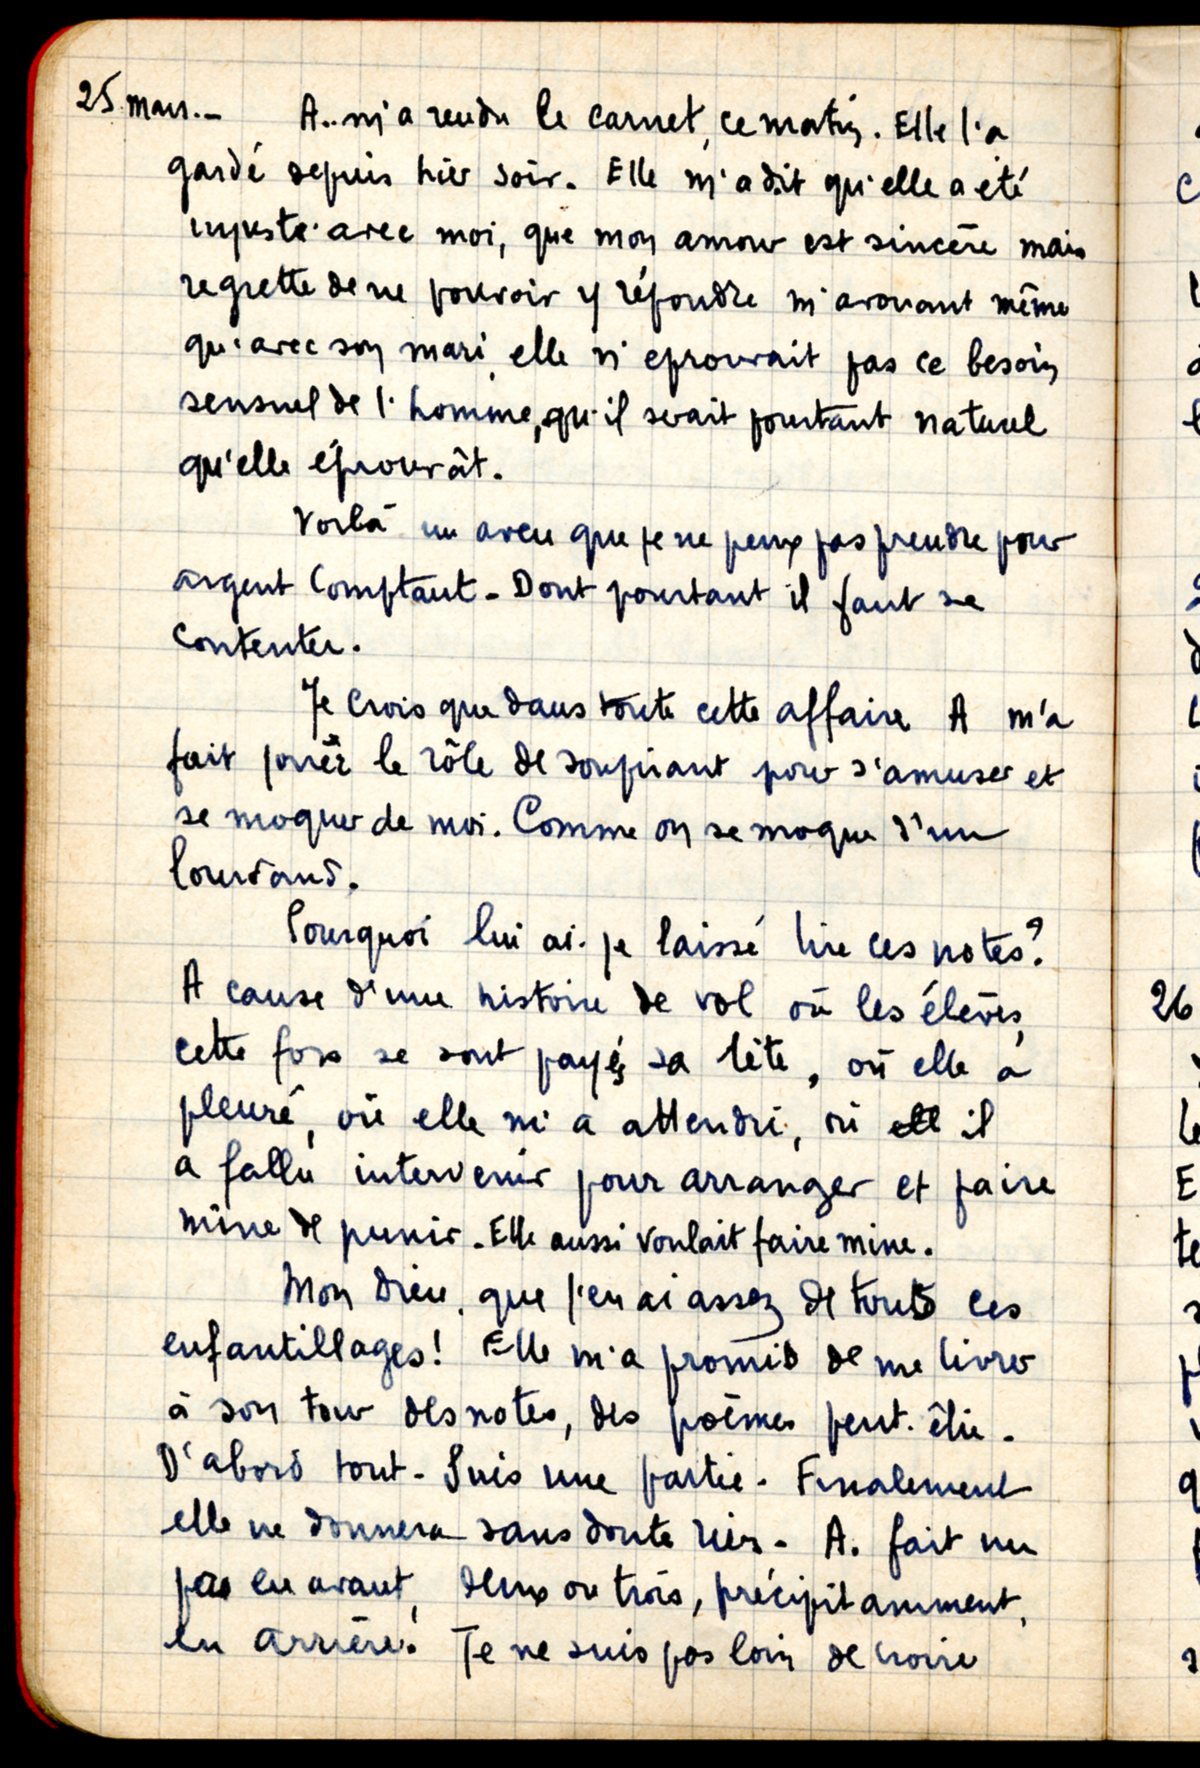 25 mars.- A.. m'a rendu le carnet, ce matin. Elle l'a
gardé depuis hier soir. Elle m'a dit qu'elle a été
injuste avec moi, que mon amour est sincère mais
regrette de ne pouvoir y répondre m'avouant même
qu'avec son mari, elle n'eprouvait pas ce besoin
sensuel de l'homme, qu'il serait pourtant naturel
qu'elle éprouvât.
Voilà un aveu que je ne peux pas prendre pour
argent comptant - Dont pourtant il faut se
contenter.
Je crois que dans toute cette affaire A m'a
fait jouer le rôle de soupirant pour s'amuser et
se moquer de moi. Comme on se moque d'un
lourdaud.
Pourquoi lui ai-je laissé lire ces notes?
A cause d'une histoire de vol où les élèves,
cette fois se sont payés sa tête, où elle a
pleuré, où elle m'a attendri, où ell il
a fallu intervenir pour arranger et faire
mine de punir. Elle aussi voulait faire mine.
Mon Dieu, que j'en ai assez de tous ces
enfantillages! Elle m'a promis de me livrer
à son tour des notes, des poèmes peut-être.
D'abord tout - Puis une partie - Finalement
elle ne donnera sans doute rien - A. fait un
pas en avant, deux ou trois, précipitamment,
en arrière! Je ne suis pas loin de croire
26